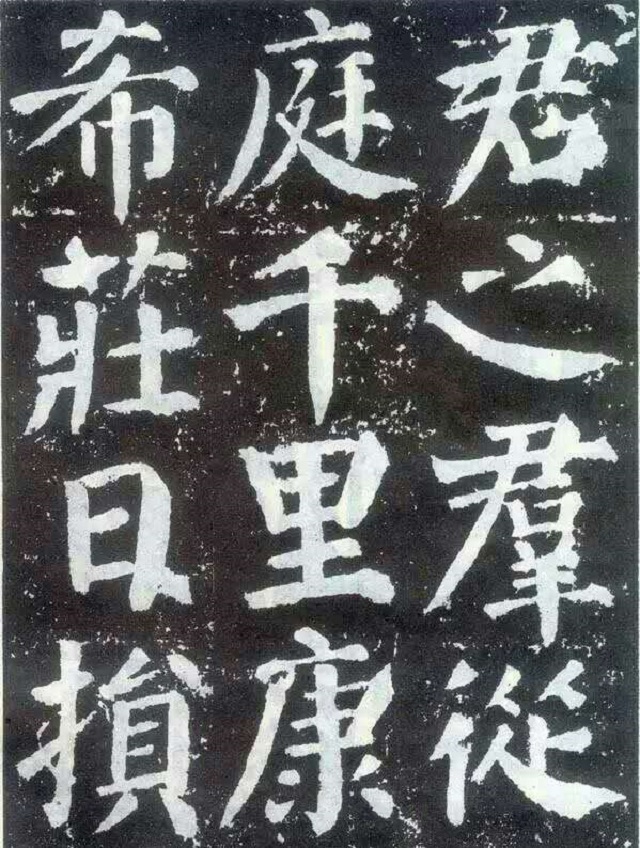 君之羣從
庭千里康
希莊日損